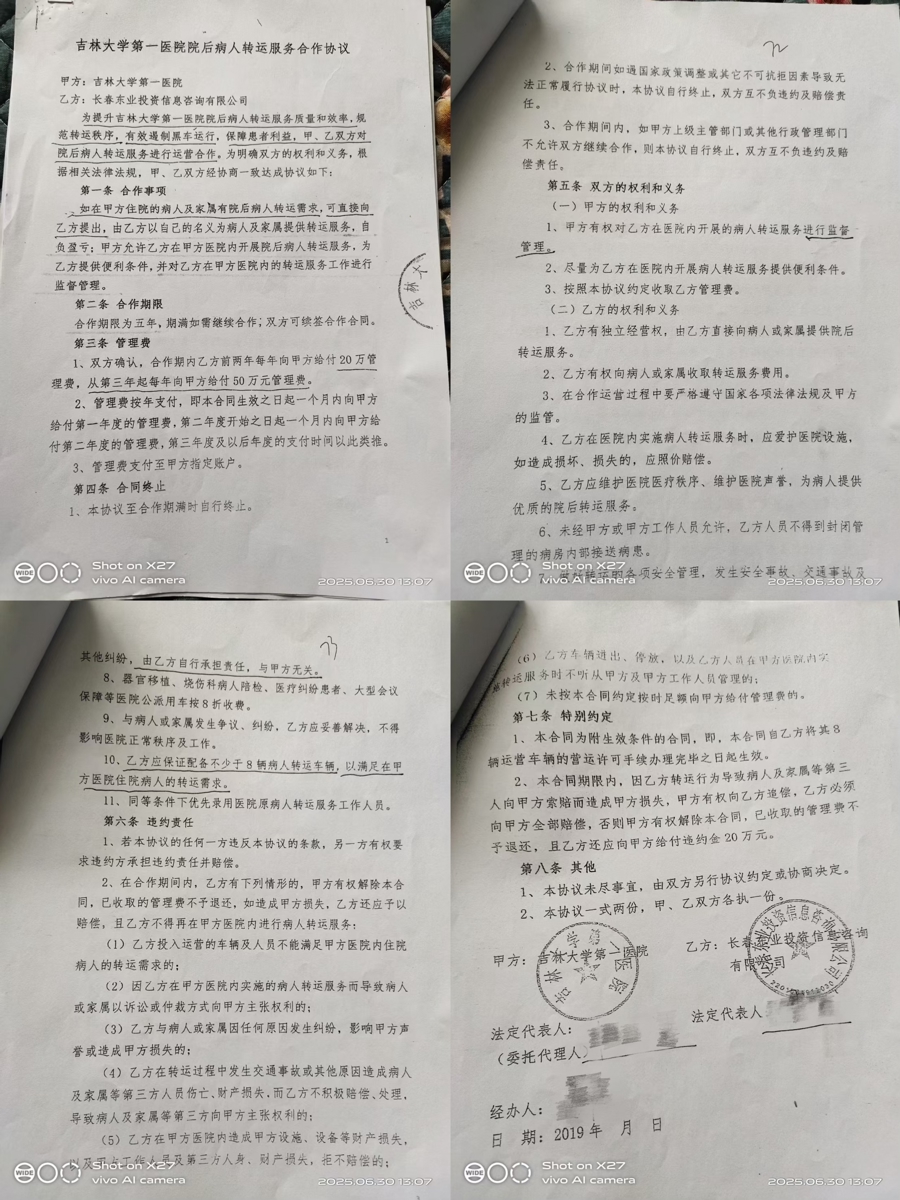 吉林大学第一医院院后病人转运服务合作协议
甲方：吉林大学第一医院
乙方：长春东业投资信息咨询有限公司
为提升吉林大学第一医院院后病人转运服务质量和效率，规
范转运秩序，有效遏制黑车运行，保障患者利益，甲、乙双方对
院后病人转运服务进行运营合作。为明确双方的权利和义务，根
据相关法律法规，甲、乙双方经协商一致达成协议如下：
第一条 合作事项
如在甲方住院的病人及家属有院后病人转运需求，可直接向
乙方提出，由乙方以自己的名义为病人及家属提供转运服务，自
负盈亏；甲方允许乙方在甲方医院内开展院后病人转运服务，为
乙方提供便利条件，并对乙方在甲方医院内的转运服务工作进行
监督管理。
第二条 合作期限
合作期限为五年，期满如需继续合作，双方可续签合作合同。
第三条 管理费
1、双方确认，合作期内乙方前两年每年向甲方给付20万管
理费，从第三年起每年向甲方给付50万元管理费。
2、管理费按年支付，即本合同生效之日起一个月内向甲方
给付第一年度的管理费，第二年度开始之日起一个月内向甲方给
付第二年度的管理费，第三年度及以后年度的支付时间以此类推。
3、管理费支付至甲方指定账户。
第四条 合同终止
1、本协议至合作期满时自行终止。
吉林大
WIDE
Shot on X27
vivo AI camera
2025.06.30 13:07
72
2、合作期间如遇国家政策调整或其它不可抗拒因素导致无
法正常履行协议时，本协议自行终止，双方互不负违约及赔偿责
任。
3、合作期间内，如甲方上级主管部门或其他行政管理部门
不允许双方继续合作，则本协议自行终止，双方互不负违约及赔
偿责任。
第五条 双方的权利和义务
（一）甲方的权利和义务
1、甲方有权对乙方在医院内开展的病人转运服务进行监督
管理。
2、尽量为乙方在医院内开展病人转运服务提供便利条件。
3、按照本协议约定收取乙方管理费。
（二）乙方的权利和义务
1、乙方有独立经营权，由乙方直接向病人或家属提供院后
转运服务。
2、乙方有权向病人或家属收取转运服务费用。
3、在合作运营过程中要严格遵守国家各项法律法规及甲方
的监管。
4、乙方在医院内实施病人转运服务时，应爱护医院设施，
如造成损坏、损失的，应照价赔偿。
5、乙方应维护医院医疗秩序、维护医院声誉，为病人提供
优质的院后转运服务。
6、未经甲方或甲方工作人员允许，乙方人员不得到封闭管
理的病房内部接送病患。
的各项安全管理，发生安全事故、交通事故及
WIDE
Shot on X27
vivo AI camera
2025.06.30 13:07
73
其他纠纷，由乙方自行承担责任，与甲方无关。
8、器官移植、烧伤科病人陪检、医疗纠纷患者、大型会议
保障等医院公派用车按8折收费。
9、与病人或家属发生争议、纠纷，乙方应妥善解决，不得
影响医院正常秩序及工作。
10、乙方应保证配备不少于8辆病人转运车辆，以满足在甲
方医院住院病人的转运需求。
11、同等条件下优先录用医院原病人转运服务工作人员。
第六条 违约责任
1、若本协议的任何一方违反本协议的条款，另一方有权要
求违约方承担违约责任并赔偿。
2、在合作期间内，乙方有下列情形的，甲方有权解除本合
同，已收取的管理费不予退还，如造成甲方损失，乙方还应予以
赔偿，且乙方不得再在甲方医院内进行病人转运服务：
（1）乙方投入运营的车辆及人员不能满足甲方医院内住院
病人的转运需求的；
（2）因乙方在甲方医院内实施的病人转运服务而导致病人
或家属以诉讼或仲裁方式向甲方主张权利的；
（3）乙方与病人或家属因任何原因发生纠纷，影响甲方声
誉或造成甲方损失的；
（4）乙方在转运过程中发生交通事故或其他原因造成病人
及家属等第三方人员伤亡、财产损失，而乙方不积极赔偿、处理，
导致病人及家属等第三方向甲方主张权利的；
（5）乙方在甲方医院内造成甲方设施、设备等财产损失，
以及甲方工作人员及第三方人身、财产损失，拒不赔偿的；
WIDE
Shot on X27
vivo AI camera
2025.06.30 13:07
（6）乙方车辆进出、停放，以及乙方人员在甲方医院内实
施转运服务时不听从甲方及甲方工作人员管理的；
（7）未按本合同约定按时足额向甲方给付管理费的。
第七条 特别约定
1、本合同为附生效条件的合同，即，本合同自乙方将其8
辆运营车辆的营运许可手续办理完毕之日起生效。
2、本合同期限内，因乙方转运行为导致病人及家属等第三
人向甲方索赔而造成甲方损失，甲方有权向乙方追偿，乙方必须
向甲方全部赔偿，否则甲方有权解除本合同，已收取的管理费不
予退还，且乙方还应向甲方给付违约金20万元。
第八条 其他
1、本协议未尽事宜，由双方另行协议约定或协商决定。
2、本协议一式两份，甲、乙双方各执一份。
甲方：吉林大学第一医院
乙方：长春东业投资信息咨询
有限公司
吉林大学第一医院
长春东业投资信息咨询有限公司
法定代表人：
（委托代理人）
法定代表人
经办人：
日 期：2019年 月 日
WIDE
Shot on X27
vivo AI camera
2025.06.30 13:07